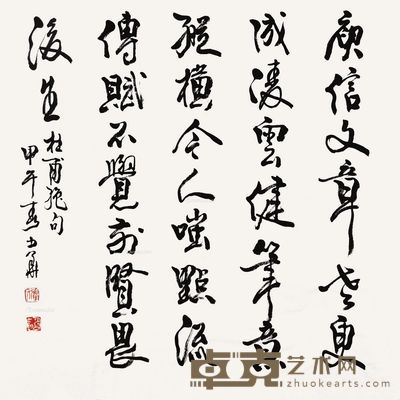 庾信文章老更
成凌雲健筆意
縱橫今人嗤點流
傳賦不覺前賢畏
後生
杜甫絕句
甲午春
卓克艺术网
zhuokearts.com